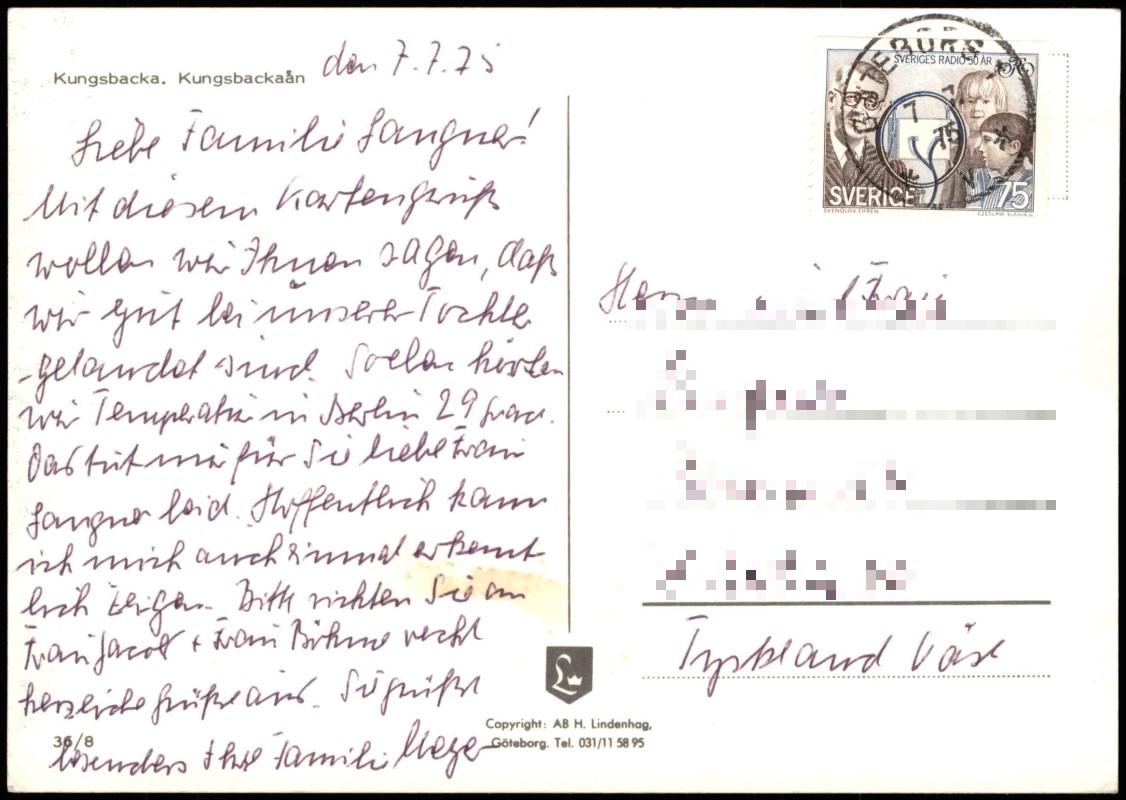 Kungsbacka. Kungsbackaån den 7.7.75
Liebe Familie Langner!
Mit diesem Kartengruß
wollen wir Ihnen sagen, daß
wir gut bei unserer Tochter
gelandet sind. Soeben hörten
wir Temperatur in Berlin 29 Grad.
Das tut mir für Sie liebe Frau
Langner leid. Hoffentlich kann
ich mich auch einmal erkennt
lich zeigen. Bitte richten Sie an
Frau Jacob + Frau Böhme recht
herzliche Grüße aus. Sie grüßt
besonders Ihre Familie
36/8
SVERIGES RADIO 50 ÅR
SVERIGE 75
SVENOLOV EHRÉN CZESLAW SLANIA sc
GÖTEBORG
7 7 75
Herrn Frau
Tyskland Väst
L
Copyright: AB H. Lindenhag,
Göteborg. Tel. 031/11 58 95